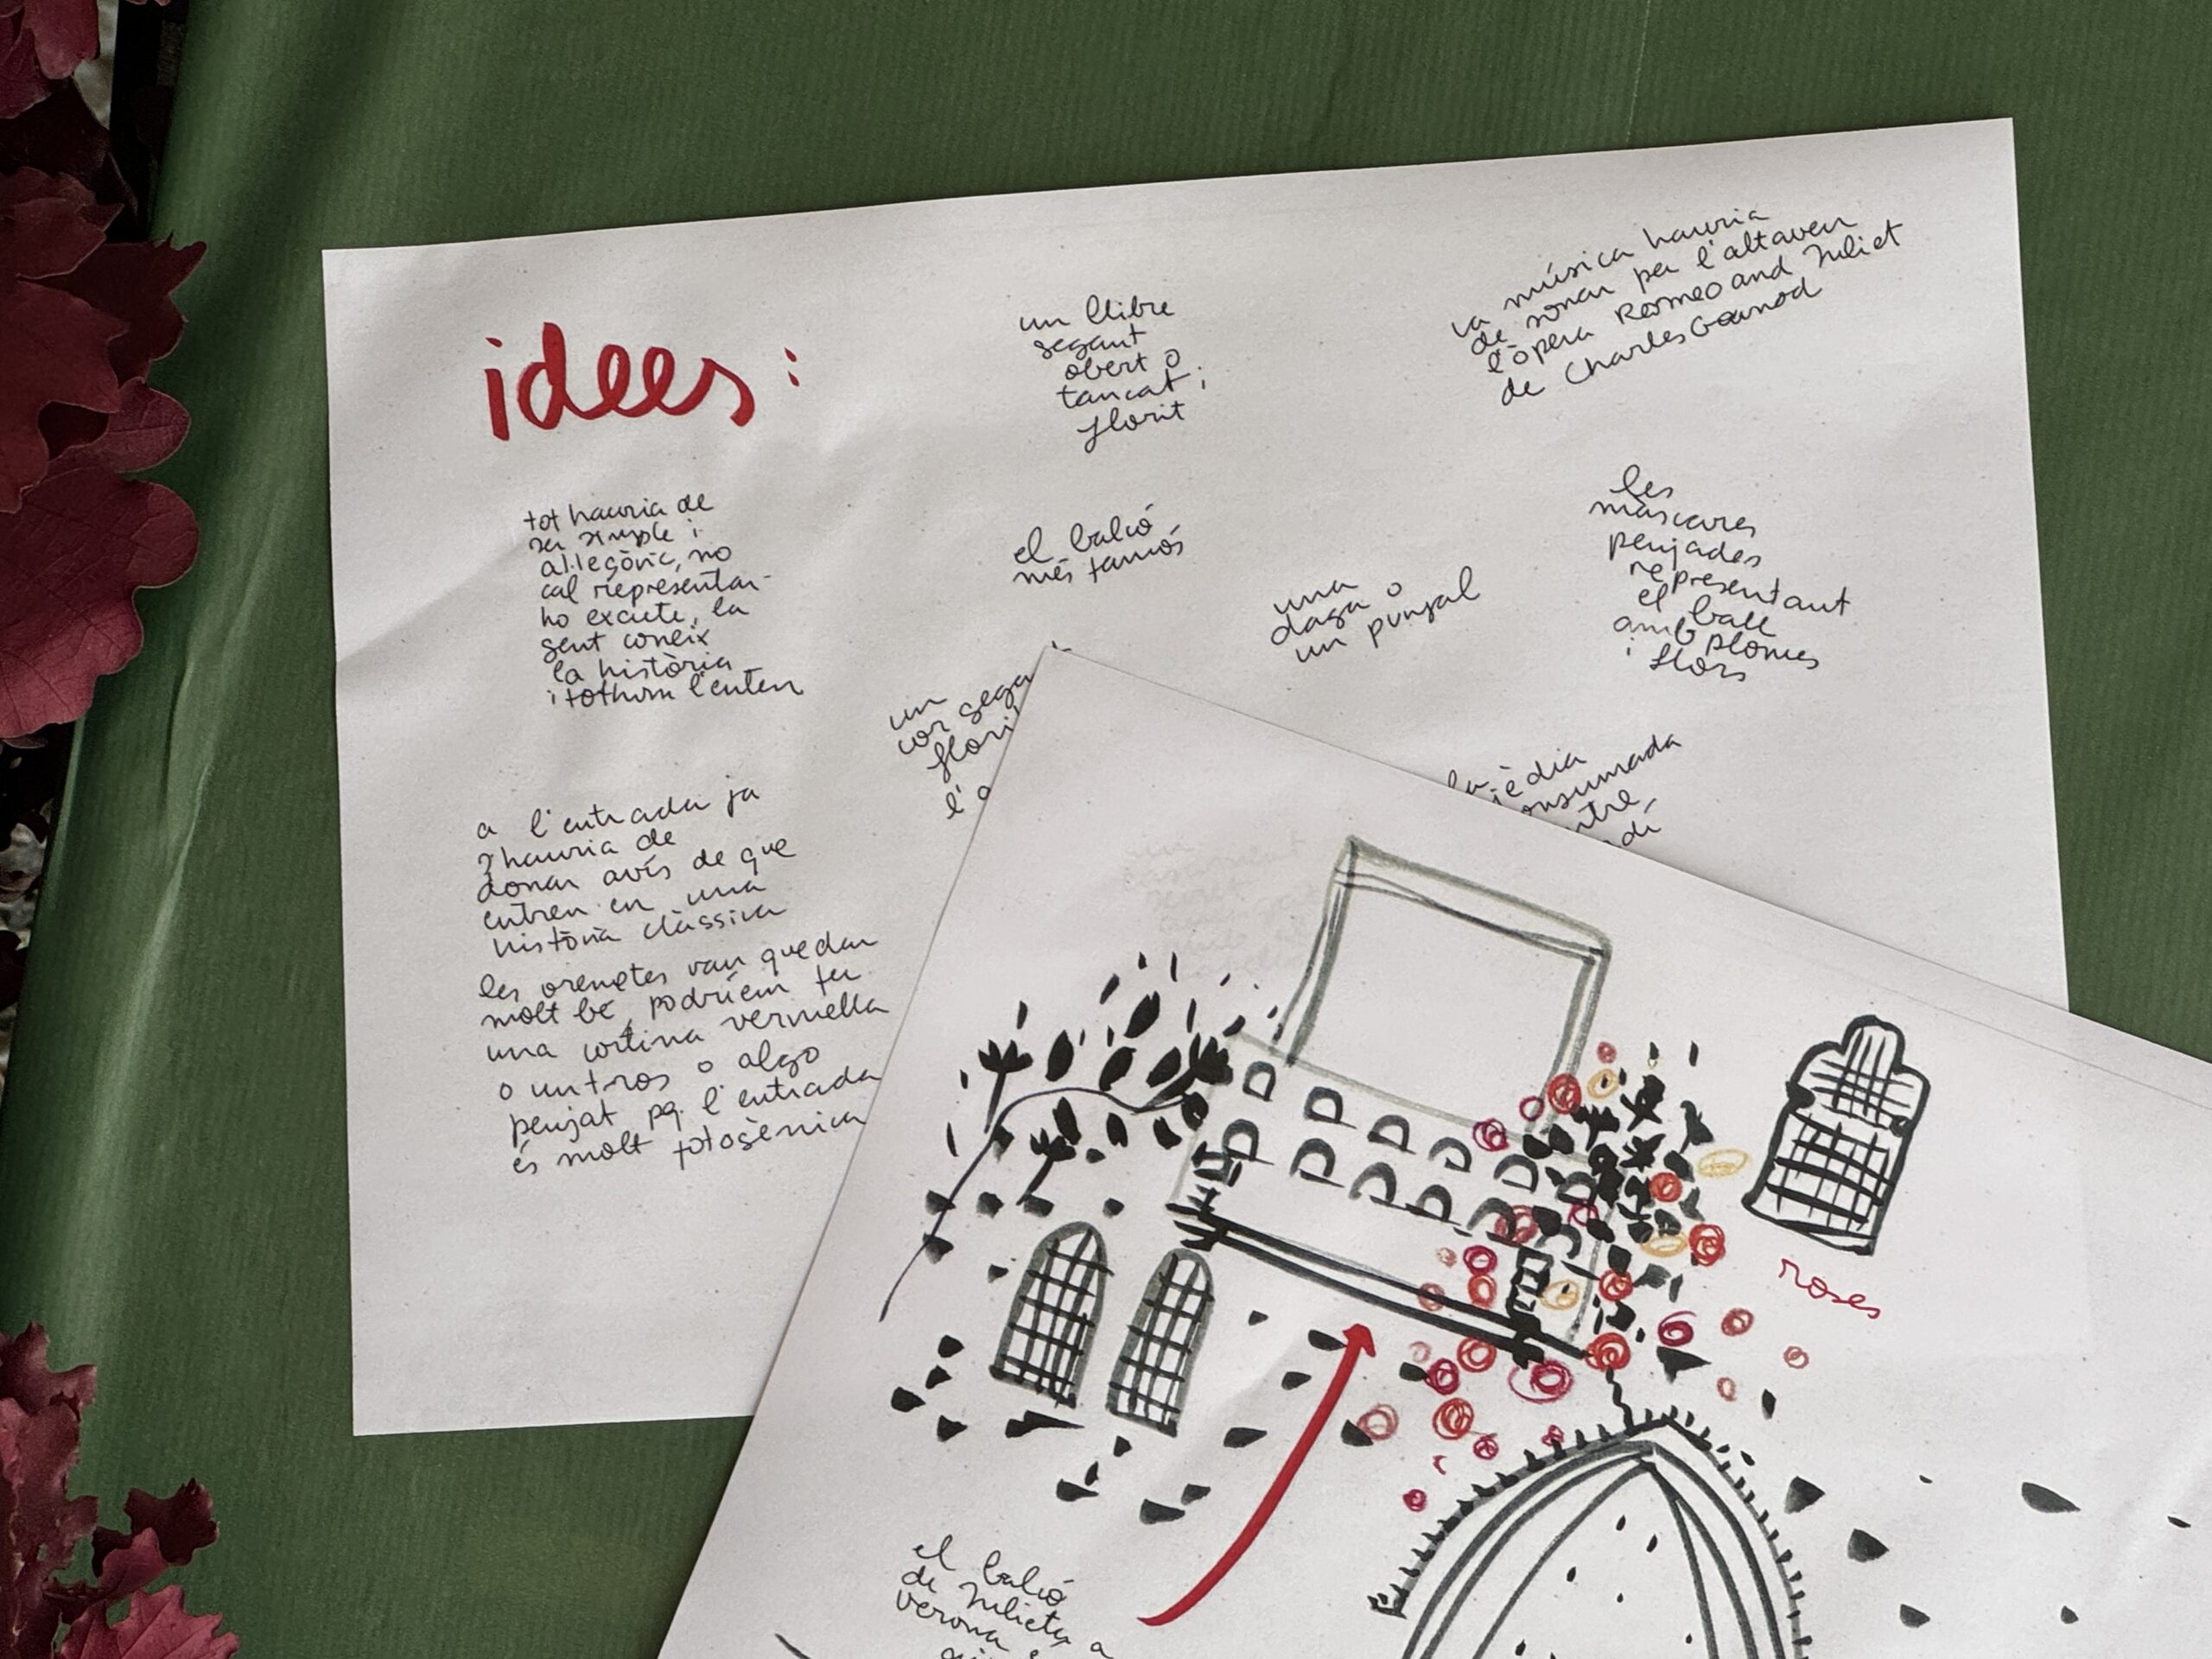 idees:
tot hauria de
ser simple i
al·legòric, no
cal representar-
ho excate, la
gent coneix
la història
i tothom l'enten
a l'entrada ja
s'hauria de
donar avís de que
entren en una
història clàssica
les orenetes van quedar
molt bé, podríem fer
una cortina vermella
o un tros o algo
penjat pq. l'entrada
és molt fotogènica
un llibre
gegant
obert o
tancat;
florit
el balcó
més famós
un
cor gega
flori
l'a
una
daga o
un punyal
la música hauria
de sonar per l'altaveu
l'òpera Romeo and Juliet
de Charles Gounod
les
màscares
penjades
representant
el ball
amb plomes
i flors
la
èdia
onsumada
ntre,
di
roses
el balcó
de Julieta a
Verona